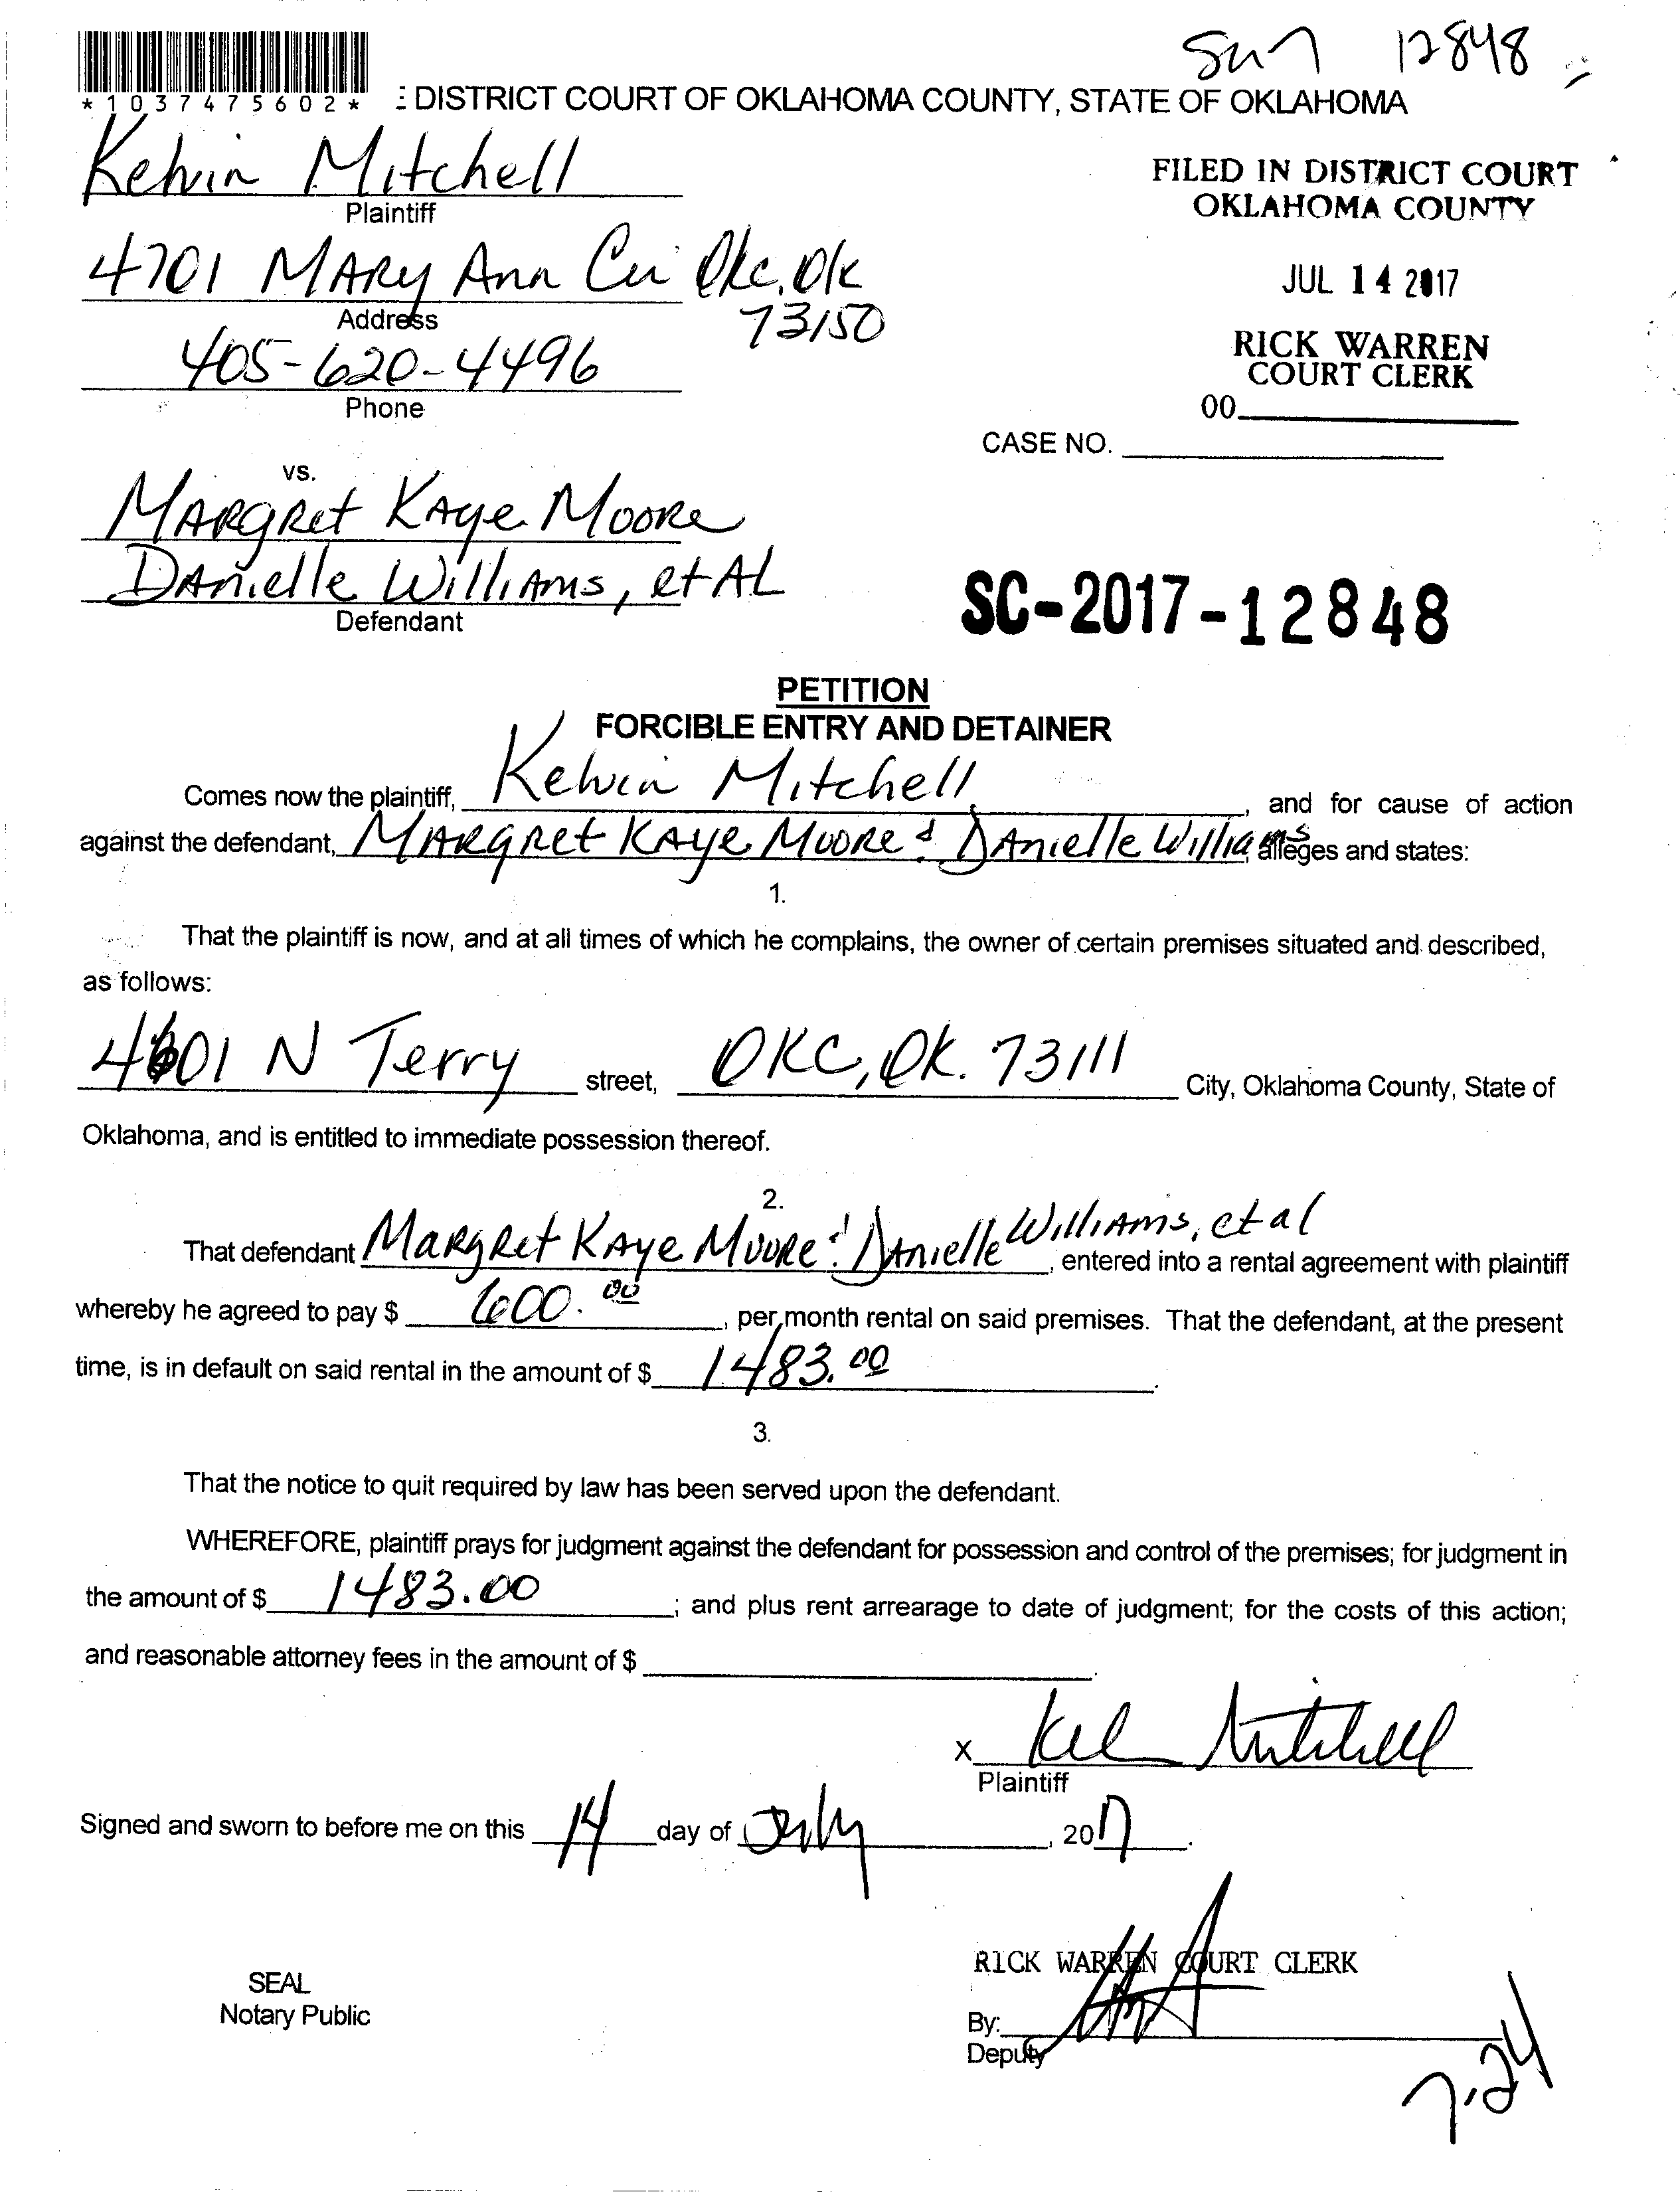 Sm 12848
*1037475602* DISTRICT COURT OF OKLAHOMA COUNTY, STATE OF OKLAHOMA
Kelvin Mitchell
Plaintiff
FILED IN DISTRICT COURT
OKLAHOMA COUNTY
JUL 14 2017
RICK WARREN
COURT CLERK
00
4701 MARY Ann Cir Okc, Ok
73150
Address
405-620-4496
Phone
CASE NO.
vs.
MARgRet KAye MooRe
DAnielle WilliAms, et AL
Defendant
SC-2017-12848
PETITION
FORCIBLE ENTRY AND DETAINER
Comes now the plaintiff, Kelvin Mitchell, and for cause of action
against the defendant, MARgRet KAye MooRe & DAnielle Williams alleges and states:
1.
That the plaintiff is now, and at all times of which he complains, the owner of certain premises situated and described,
as follows:
4601 N Terry street, OKC, OK. 73111 City, Oklahoma County, State of
Oklahoma, and is entitled to immediate possession thereof.
2.
That defendant MaRgRet KAye MooRe & DAnielle WilliAms, et al, entered into a rental agreement with plaintiff
whereby he agreed to pay $ 600.00, per month rental on said premises. That the defendant, at the present
time, is in default on said rental in the amount of $ 1483.00.
3.
That the notice to quit required by law has been served upon the defendant.
WHEREFORE, plaintiff prays for judgment against the defendant for possession and control of the premises; for judgment in
the amount of $ 1483.00; and plus rent arrearage to date of judgment; for the costs of this action;
and reasonable attorney fees in the amount of $ .
X Kel Mitchell
Plaintiff
Signed and sworn to before me on this 14 day of July, 2017.
RICK WARREN COURT CLERK
SEAL
Notary Public
By:
Deputy
7-24